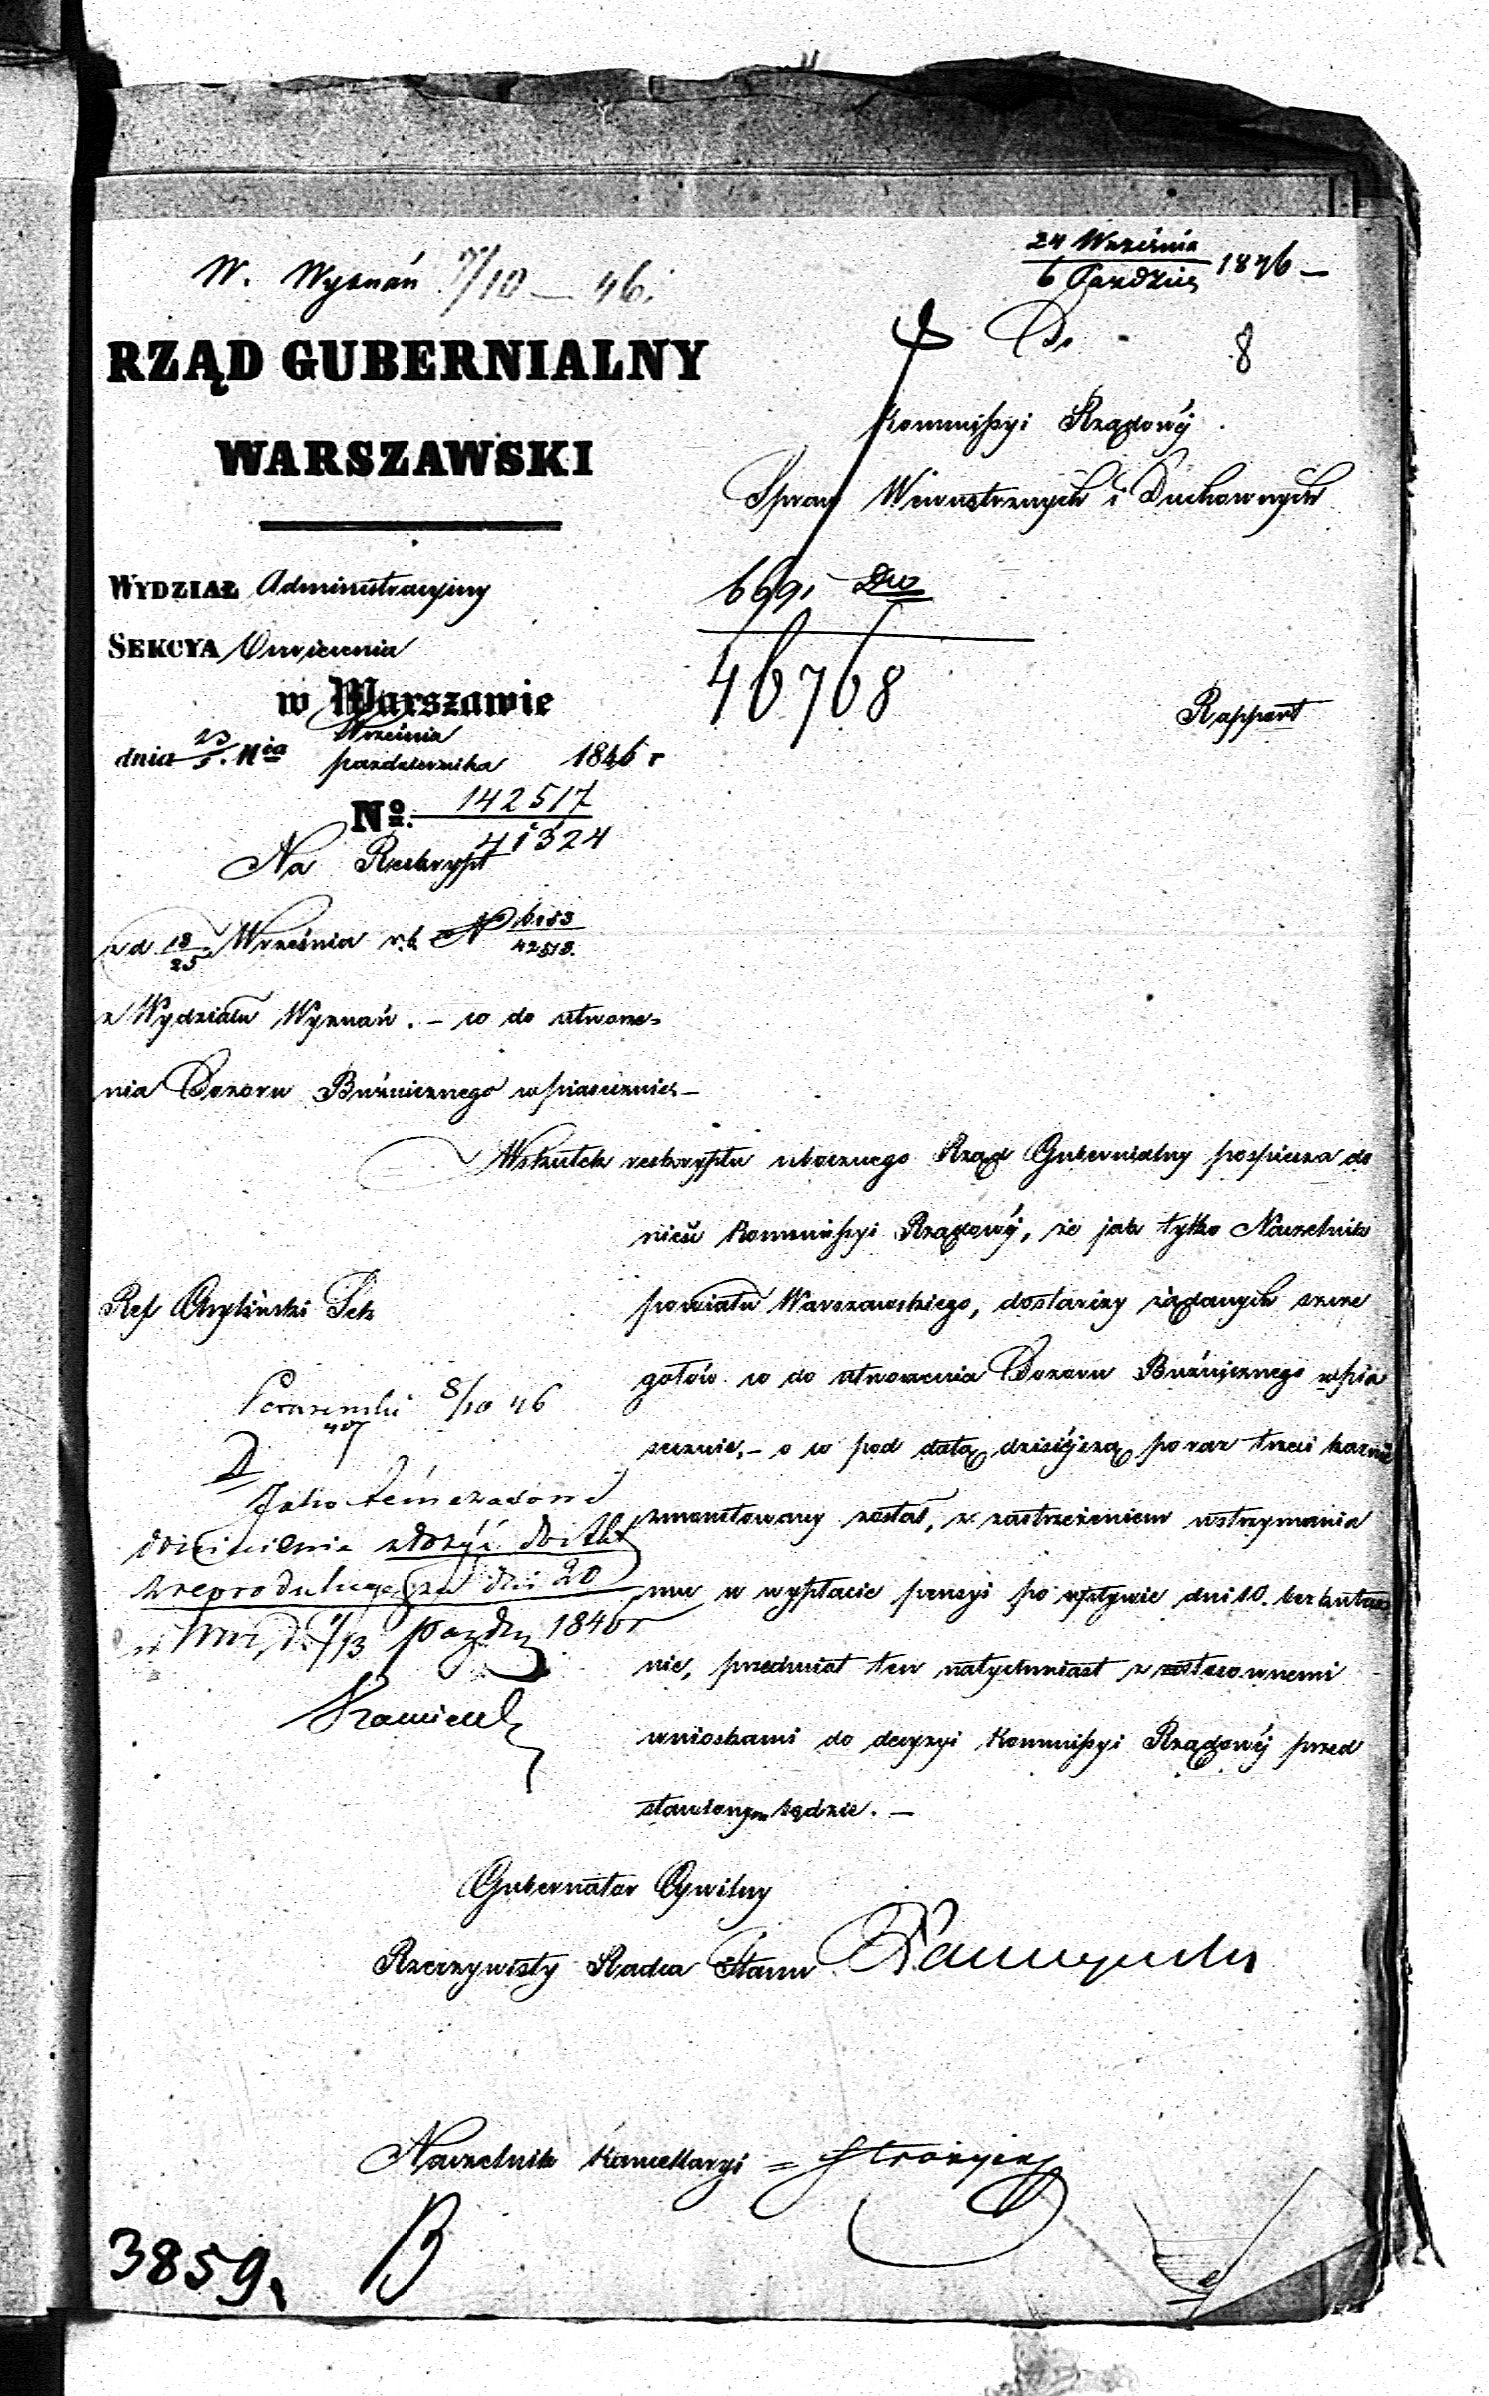 W. Wyznań 7/10 — 46.
24 Września
6 Paździer 1846 —
Do
8
RZĄD GUBERNIALNY
WARSZAWSKI
Kommissyi Rządowéj
Spraw Wewnętrznych i Duchownych
WYDZIAŁ Administracyiny
SEKCYA
w Warszawie
dnia 23/5. Nia Września
października 1846 r
669.
46768
Rapport
No. 142517
41324
Na Reskrypt
z d 18/25 Września r.b. N 6153
42518.
z Wydziału Wyznań. — co do utworze-
nia Dozoru Bużnicznego w Piasecznie. —
Wskutek reskryptu ubocznego Rząd Gubernialny pospiesza do
nieść Kommissyi Rządowéj, że jak tylko Naczelnik
powiatu Warszawskiego, dostarczy żądanych szcze
gołów co do utworzenia Dozoru Bużnicznego w Pia
secznie, — o co pod datą dzisiéjszą po raz trzeci karnie
zmonitowany został, z zastrzeżeniem wstrzymania
mu w wypłacie pensyi po upływie dni 10. bezskutecz
nie, przedmiot ten natychmiast z stosownemi
wnioskami do decyzyi Kommissyi Rządowéj przed
stawionym będzie. —
Ref Sek
8/10 46
Jako
złożyć do Akt
zreprodukuje za dni 20
w Wwie, d. 1/13 Paździer 1846 r
Gubernator Cywilny
Rzeczywisty Radca Stanu
Naczelnik Kancellaryi =
3859.
B